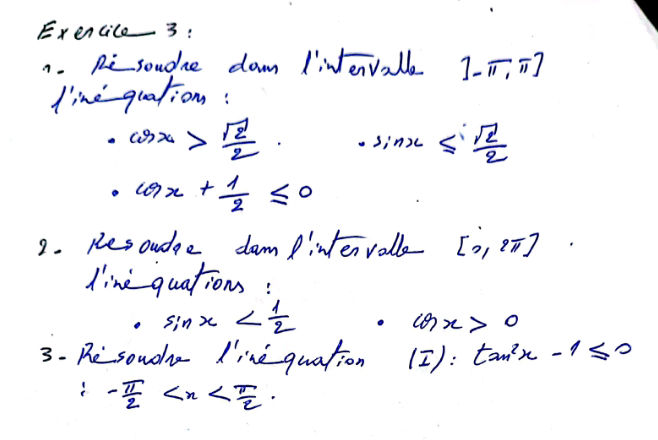 Exercice 3 :
1- Résoudre dans l'intervalle ]-π, π]
l'inéquations :
• cos x > √2/2 . • sin x ≤ √2/2
• cos x + 1/2 ≤ 0
2- Resoudre dans l'intervalle [0, 2π] .
l'inéquations :
• sin x < 1/2 • cos x > 0
3- Résoudre l'inéquation (I) : tan²x - 1 ≤ 0
: -π/2 < x < π/2 .